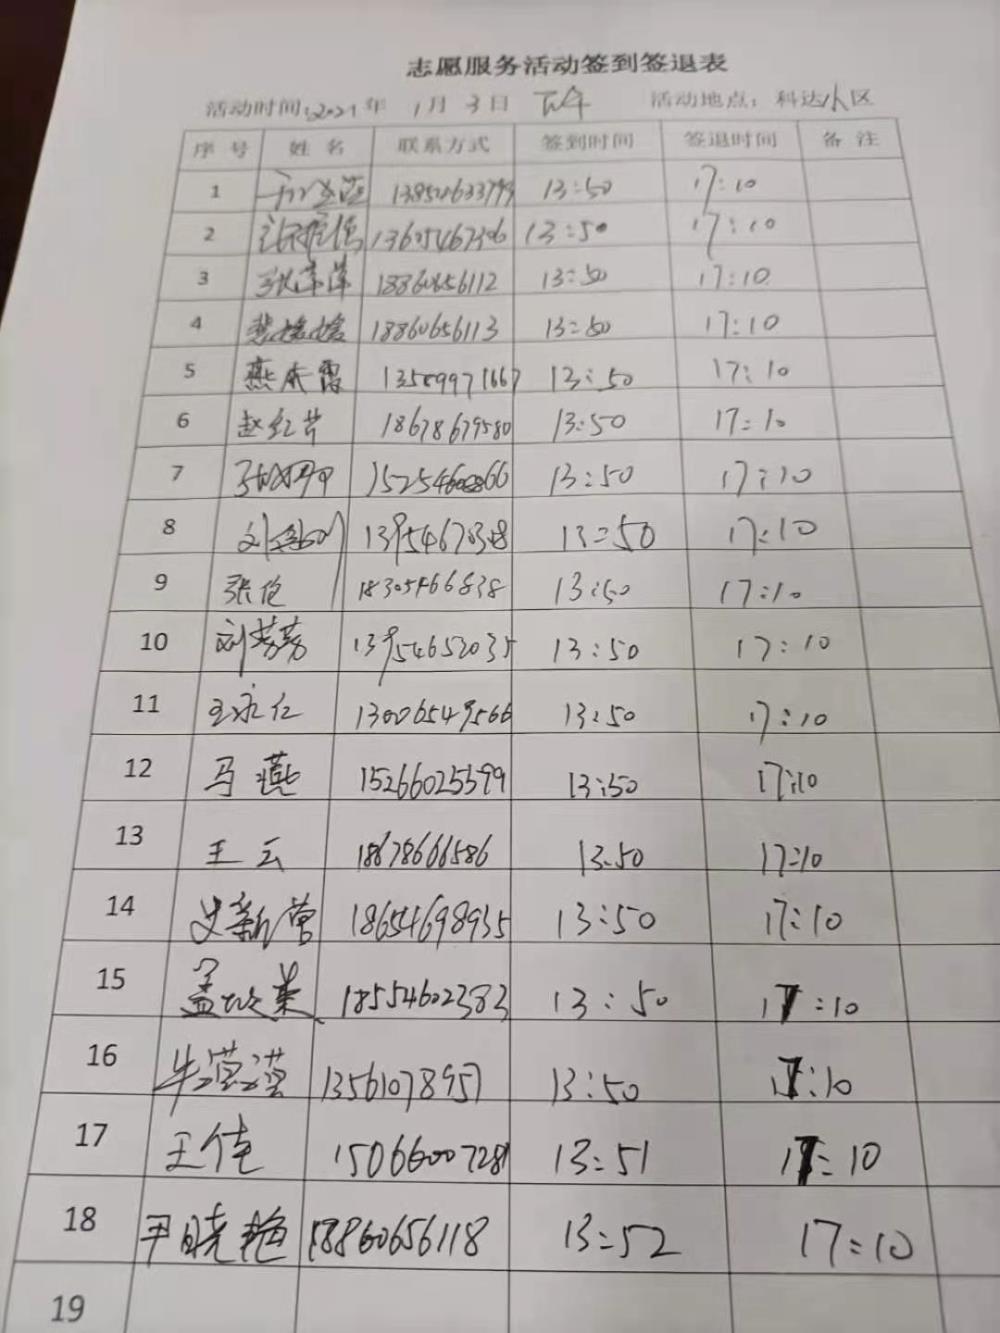 志愿服务活动签到签退表
活动时间:2021年 1月3日 下午 活动地点:科达小区
序号 姓名 联系方式 签到时间 签退时间 备注
1 13:50 17:10
2 13:50 17:10
3 张萍萍 18860656112 13:50 17:10
4 18860656113 13:50 17:10
5 13589971667 13:50 17:10
6 赵红芹 18678679580 13:50 17:10
7 13:50 17:10
8 13:50 17:10
9 张伦 18305466838 13:50 17:10
10 刘芳芳 13954652035 13:50 17:10
11 王永仁 13006549566 13:50 17:10
12 马燕 15266025599 13:50 17:10
13 王云 18678666586 13:50 17:10
14 史新营 18654698935 13:50 17:10
15 18554602383 13:50 17:10
16 13561078957 13:50 17:10
17 王倩 15066007281 13:51 17:10
18 尹晓艳 18860656118 13:52 17:10
19